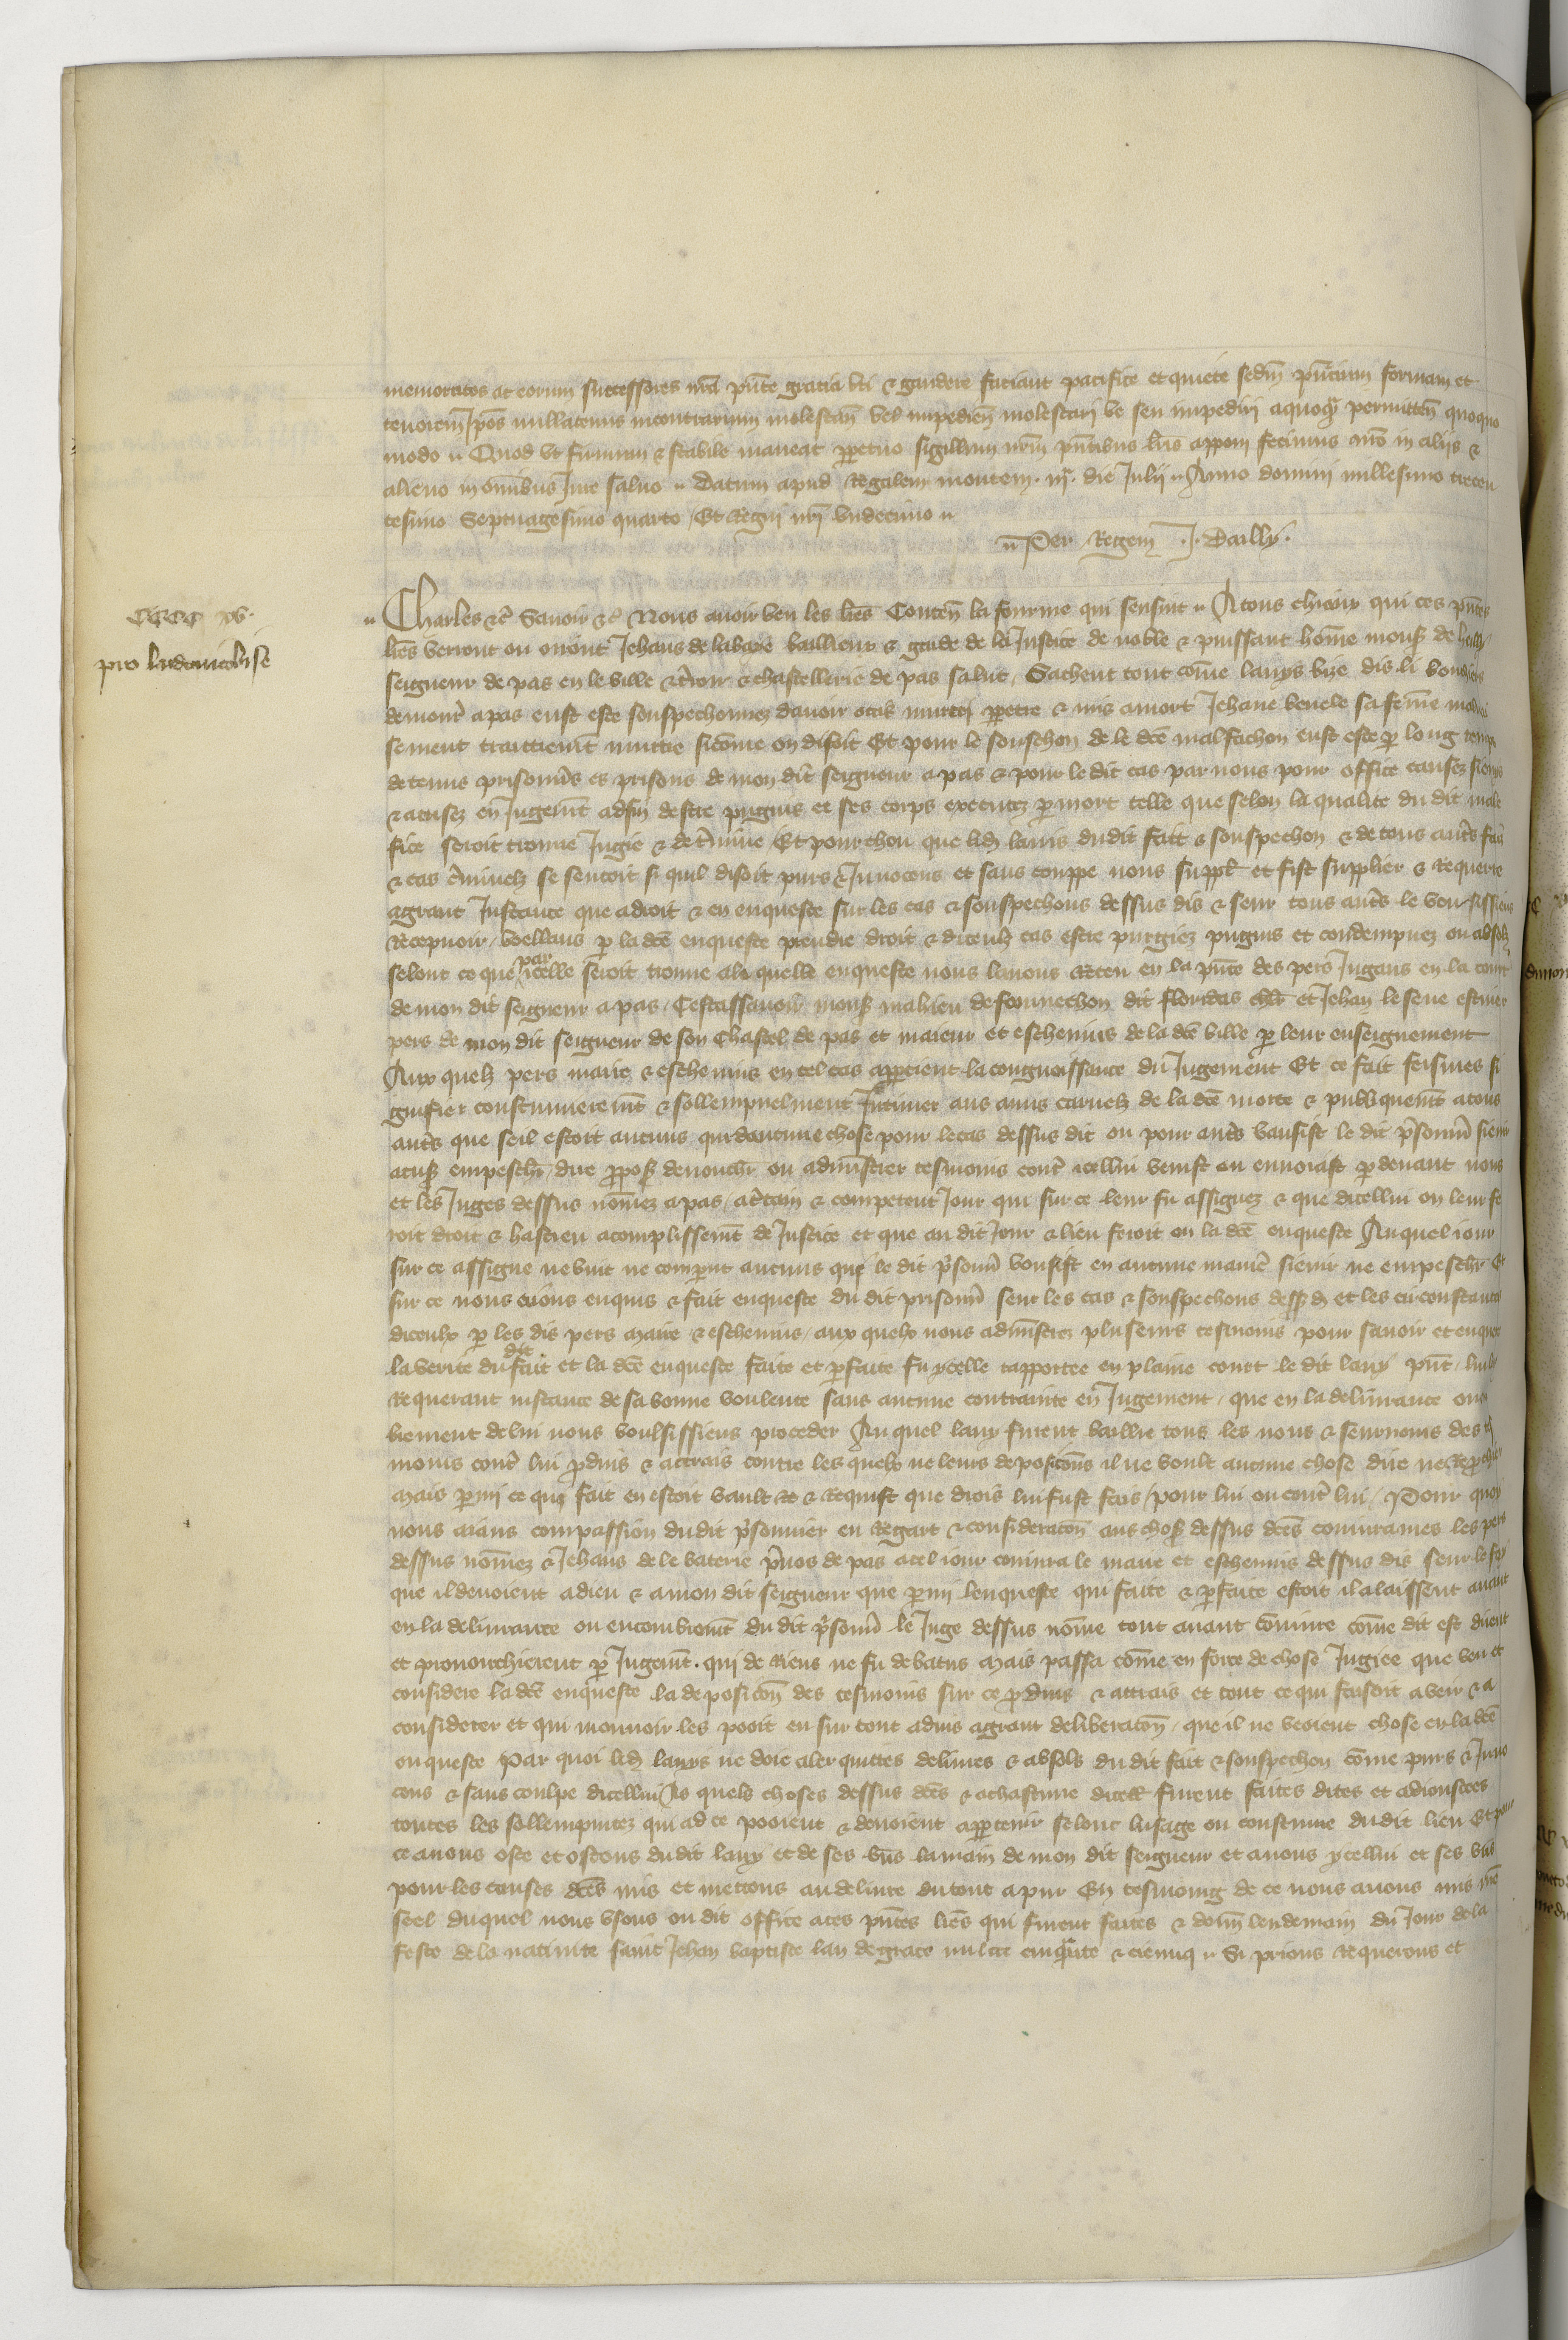 memoratos ac eorum successores nr̃a pñte gracia uti & gaudere faciant pacifice et quiete sedm̃ pñcium formam et
tenorem ip̃os nullatenus incontrarium molestan̄ vel impedien̄ molestari ve seu impediri aquoq̃ permitten̄ quoquo
modo Quod ut firmum & stabile maneat ꝑpetuo sigillum nr̃m pñtibus lr̃is apponi fecimus nr̃o in aliis &
alieno in om̃ibus Jure saluo Datum apud Regalem montem . iij . die Julii Anno domini millesimo trecen
tesimo Septuagesimo quarto / Et Regni nr̃i undecimo
Per Regem . J . Dailly .
CCCC xv .
pro ludouico bise
Charles &c̃ Sauoir &c̃ Nous auoir veu les lr̃es Conten̄ la fourme qui sensuit Atous chiaux qui ces pñtes
lr̃es verront ou orront Jehans de labare baillieux & garde de la Justice de noble & puissant hom̃e mons̃ de heilly
seigneur de pas en le ville & t̃roir & chastellerie de pas salut / Sachent tout com̃e lauys bize dis li
demour̃ apas eust este souspechonnez dauoir ocis murtri ꝑpetre & mis amort Jehane sa fem̃e mal
sement traittiem̃t murtre sicom̃e on disoit Et pour le souspechon de le dcẽ malfachon eust este ꝑ long temps
detenus prisonn̄s es prisons de mon dit seigneur apas & pour le dit cas par nous pour office causez
& acusez en Jugem̃t adfin destre pugnis et ses corps executez ꝑ mort telle que selon la qualite du dit male
fice seroit trouue Jugie & det̃mine Et pour chou que led̃ lauis dudit fait & souspechon & de tous aut̃s fais
& cas c̃minelz se sentoit si quil disoit purs & Jnnocens et sans couppe nous suppl̃ et fist supplier & requerre
agrant Jnstance que adroit & en enqueste sur les cas & souspechons dessus dis & seur tous aut̃s le vousissiens
Receuoir / voellans ꝑ la dcẽ enqueste prendre droit & diceulz cas estre purgiez pugnis et condempnez ou absolz
selonc ce que par icelle seroit trouue ala quelle enqueste nous lauons Receu en la pñce des pers Jugans en la court
de mon dit seigneur apas / Cestassauoir mons̃ mahieu de sonnechon dit floridas chlr̃ et Jehan le sene escuier
pers de mon dit seigneur de son Chastel de pas et maieur et escheuins de la dcẽ ville ꝑ leur enseignement
Aux quelz pers maire & escheuins en tel cas apꝑtient la congnoissance du Jugement Et ce fait feismes si
gnifier coustumierem̃t & sollempnelment Jntimer aus amis carnelz de la dcẽ morte & publiquem̃t atous
aut̃s que seil estoit aucuns qui daucune chose pour le cas dessus dit ou pour aut̃s vausist le dit p̃sonn̄ sieuir
acus̃ empeschr̃ / dire ꝓpos̃ denonchr̃ ou administrer tesmoins cont̃ icellui venist ou enuoiast ꝑ deuant nous
et les Juges dessus nom̃ez apas / ac̃tain & competent Jour qui sur ce leur fu assignez & que dicellui on leur fe
roit droit & hastieu acomplissem̃t de Justice et que au dit Jour & lieu feroit on la dcẽ enqueste Auquel iour
sur ce assigne ne vint ne comparut aucuns qui le dit p̃sonn̄ vousist en aucune manier̃ sieuir ne empeschr̃ Et
sur ce nous eüons enquis & fait enqueste du dit prisonn̄ seur les cas & souspechons dess̃ d̃ et les circonstances
diceulx ꝑ les dis pers maire & escheuins / aux quelx nous administrez pluseurs tesmoins pour sauoir et enquer
la verite du dit fait et la dcẽ enqueste faite et ꝑfaite fu ycelle rapportee en plaine court le dit lauy pñt /
Requerant instance de sa bonne voulente sans aucune contrainte en Jugement / que en la deliurance ou
briement de lui nous voulsissiens proceder Au quel lauy furent baillie tous les nons & seurnoms des
moins cont̃ lui ꝓduis & attrais contre les quelx ne leurs deposicõns il ne voult aucune chose dire ne Reprochier
Mais ꝑmi ce qui fait en estoit vault & Requist que drois lui fust fais / pour lui ou cont̃ lui / Pour quoy
nous aians compassion dudit p̃sonnier eu Regart & consideracõn aus chos̃ dessus dcẽs coniurames les pers
dessus nom̃ez & Jehans de le baterie p̃uos de pas acel iour coniura le maire et escheuins dessus dis seur le foy
que il deuoient adieu & amon dit seigneur que ꝑmi lenqueste qui faite & ꝑfaite estoit il alaissent auant
en la deliurance ou encombrem̃t du dit p̃sonn̄ le Juge dessus nom̃e tout auant com̃inre com̃e dit est dirent
et prononchierent ꝑ Jugem̃t . qui de Riens ne fu debatus Mais passa com̃e en force de chose Jugiee que veu et
considere la dcẽ enqueste la deposicõn des tesmoins sur ce ꝓduis & attrais et tout ce qui faisoit aveir & a
considerer et qui mouuoir les pooit eu sur tout aduis agrant deliberacõn / que il ne veoient chose en la dcẽ
enqueste Par quoi led̃ lauys ne doie aler quittes deliures & absols du dit fait & souspechon com̃e purs & Jnno
cens & sans coulpe dicellui Es quels choses dessus dcẽs & achascune dicelles furent faites dites et adioustees
toutes les sollempnitez qui ad ce pooient & deuoient apꝑtenir selonc lusage ou coustume dudit lieu Et pour
ce auons oste et ostons dudit lauy et de ses biẽs lamain de mon dit seigneur et auons ycellui et ses biẽs
pour les causes dcẽs mis et mettons au deliure du tout a pur En tesmoing de ce nous auons mis nr̃e
seel duquel nous vsons ou dit office aces pñtes lr̃es qui furent faites & donn̄ lendemain du Jour de la
feste de la natiuite saint Jehan baptiste lan de grace mil ccc cinquãte & cienuq Si prions Requerons et